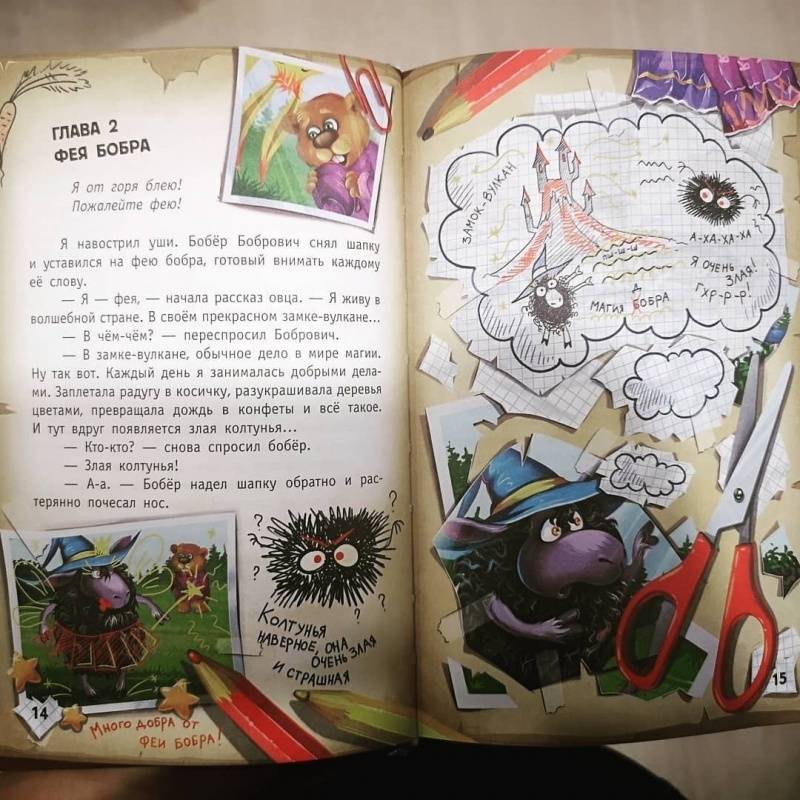 ГЛАВА 2
ФЕЯ БОБРА
Я от горя блею!
Пожалейте фею!
Я навострил уши. Бобёр Бобрович снял шапку
и уставился на фею бобра, готовый внимать каждому
её слову.
— Я — фея, — начала рассказ овца. — Я живу в
волшебной стране. В своём прекрасном замке-вулкане...
— В чём-чём? — переспросил Бобрович.
— В замке-вулкане, обычное дело в мире магии.
Ну так вот. Каждый день я занималась добрыми дела-
ми. Заплетала радугу в косичку, разукрашивала деревья
цветами, превращала дождь в конфеты и всё такое.
И тут вдруг появляется злая колтунья...
— Кто-кто? — снова спросил бобёр.
— Злая колтунья!
— А-а. — Бобёр надел шапку обратно и рас-
терянно почесал нос.
? ? ? ? ? ?
Колтунья
наверное, она
очень злая
и страшная
14
Много добра от
феи бобра!
ЗАМОК-ВУЛКАН
А-ХА-ХА-ХА
Я ОЧЕНЬ
ЗЛАЯ!
ГХР-Р-Р!
ПШ-Ш-Ш
Д
МАГИЯ БОБРА
15